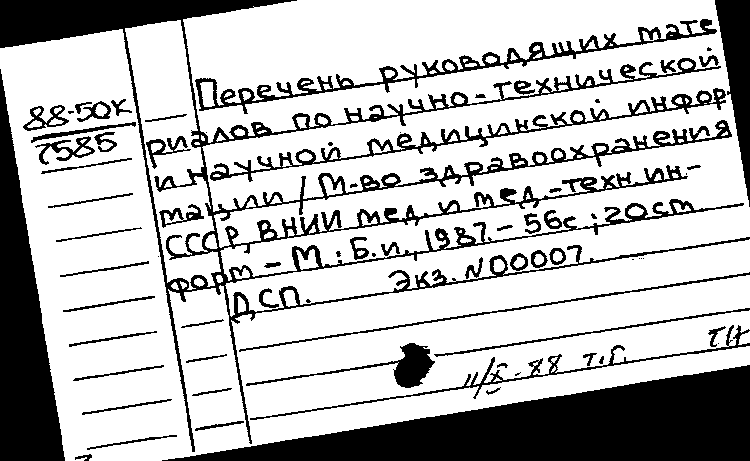 88-50К
7585
Перечень руководящих мате
риалов по научно-технической
и научной медицинской инфор-
мации / М-во здравоохранения
СССР, ВНИИ мед. и мед.-техн. ин-
форм – М.: Б.и., 1987. – 56с ; 20см.
ДСП. Экз. N00007.
11/X-88 т.г.